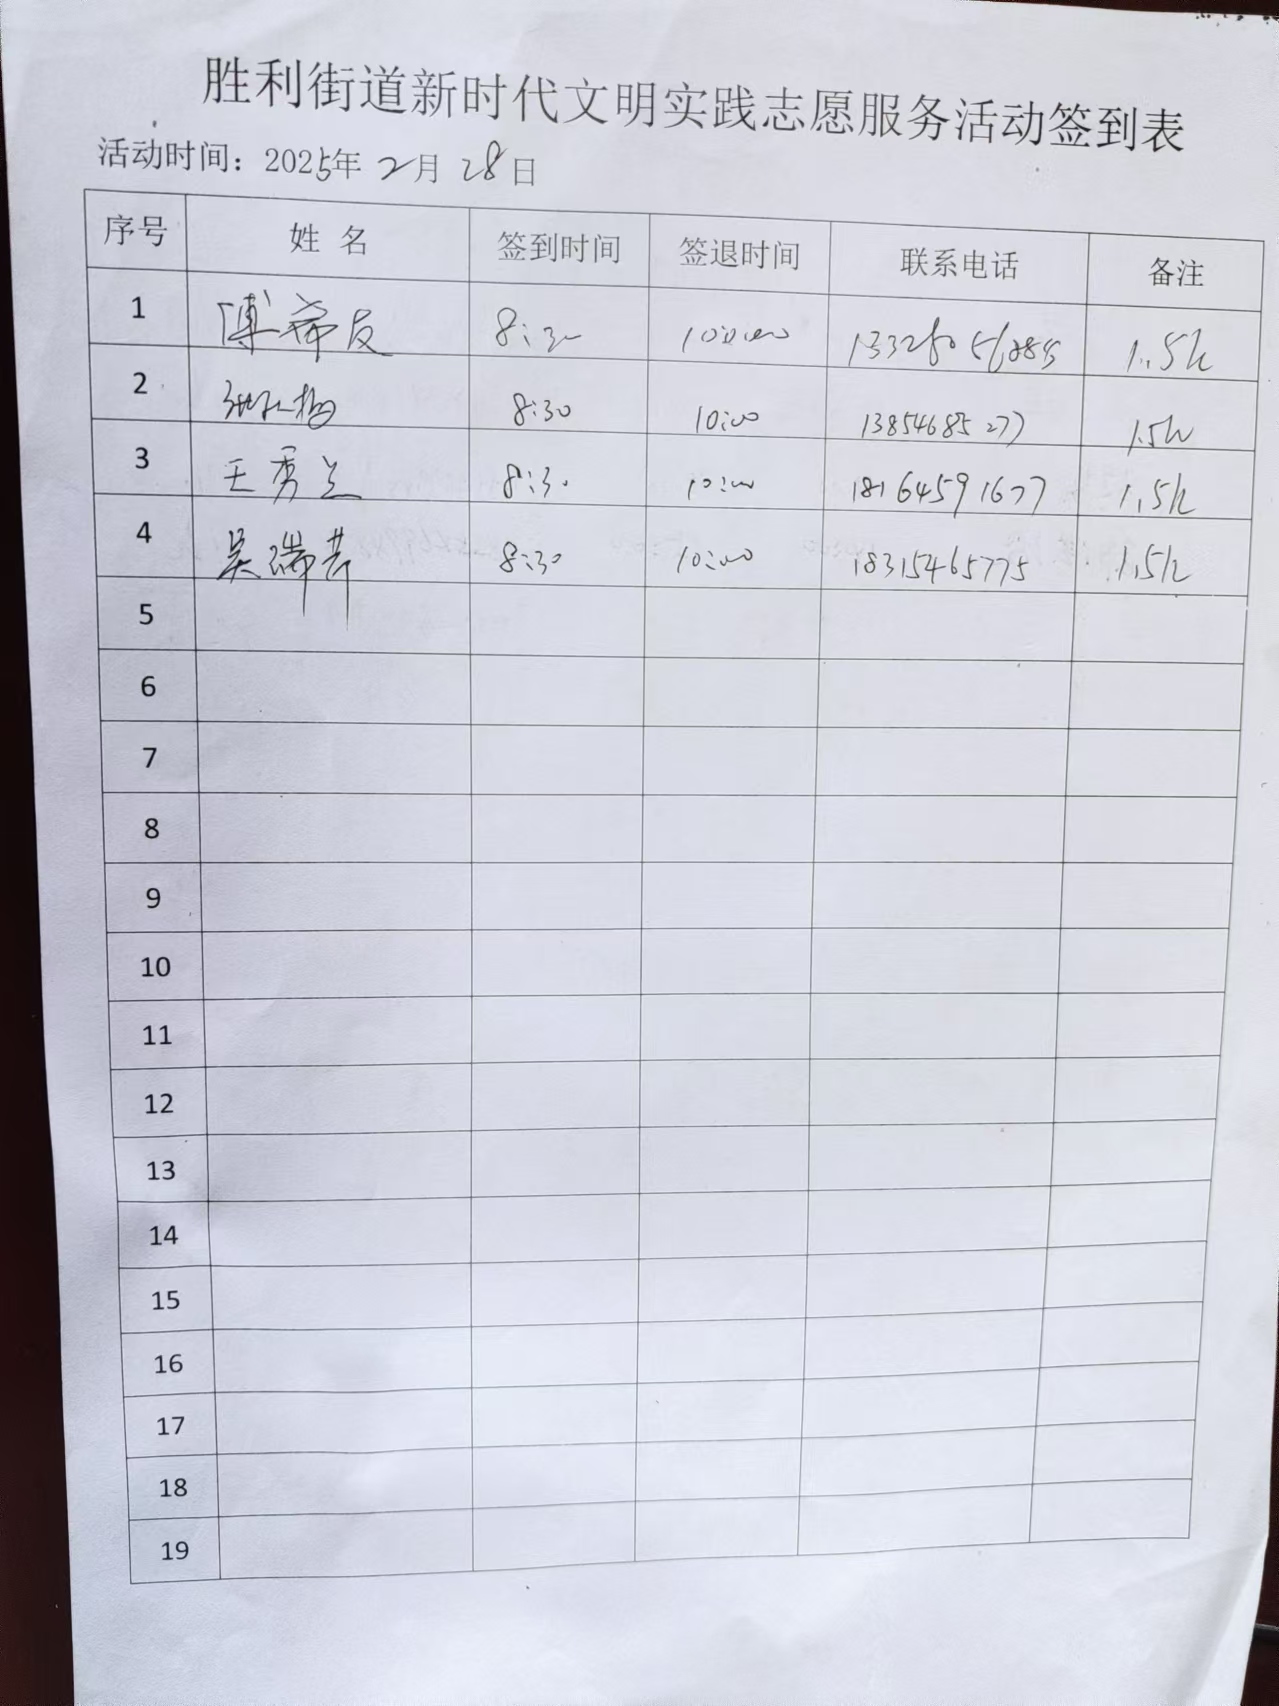 胜利街道新时代文明实践志愿服务活动签到表
活动时间：2025年 2月 28日
序号 姓名 签到时间 签退时间 联系电话 备注
1 傅希友 8:30 10:00 1.5h
2 8:30 10:00 13854685277 1.5h
3 王秀兰 8:30 10:00 18164591677 1.5h
4 吴瑞芹 8:30 10:00 18315465775 1.5h
5
6
7
8
9
10
11
12
13
14
15
16
17
18
19